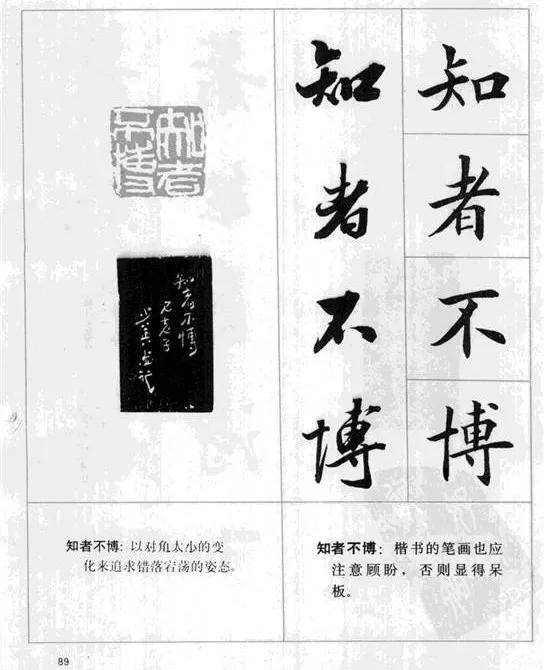 知者不博
知者不博
知者不博
知者不博
老子
知者不博：以对角太小的变
化来追求错落宕荡的姿态。
知者不博：楷书的笔画也应
注意顾盼，否则显得呆
板。
89